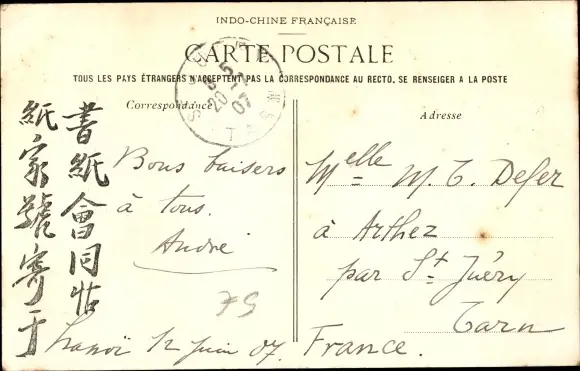 INDO-CHINE FRANÇAISE
CARTE POSTALE
TOUS LES PAYS ÉTRANGERS N'ACCEPTENT PAS LA CORRESPONDANCE AU RECTO. SE RENSEIGER A LA POSTE
Correspondance
Adresse
書紙會同帖
紙家號寄于
Bons baisers
à tous.
André
79
Hanoï 12 Juin 07.
Melle M. T. Defer
à Arthez
par St Juéry
Tarn
France.
20
07
TARN